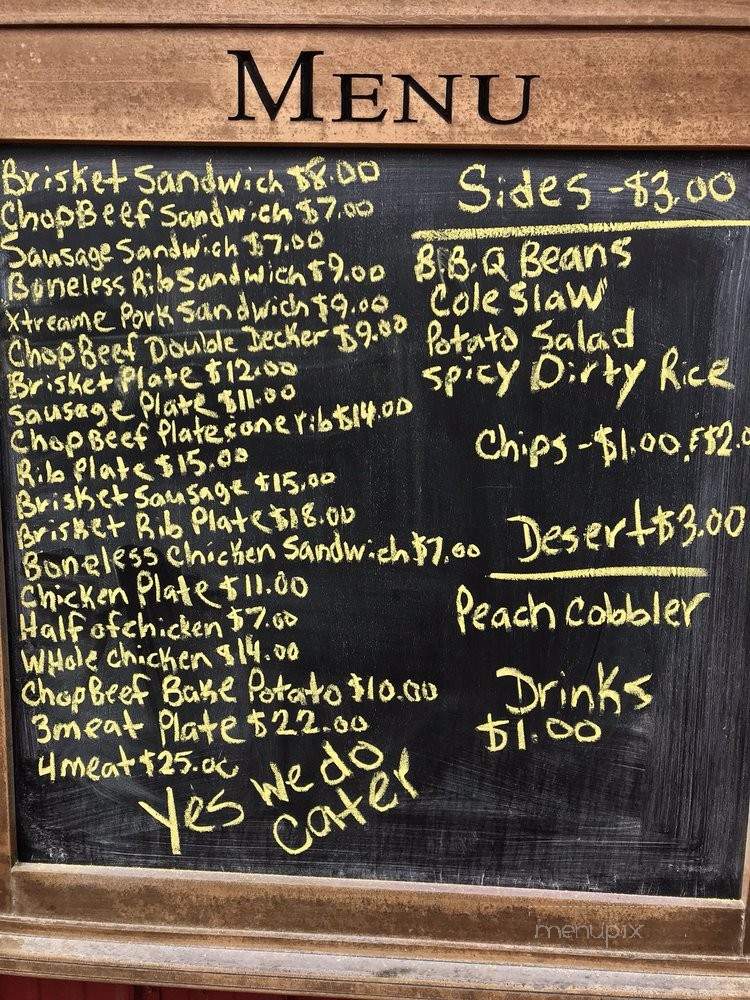 MENU
Brisket Sandwich $8.00
ChopBeef Sandwich $7.00
Sausage Sandwich $7.00
Boneless Rib Sandwich $9.00
Xtreame Pork Sandwich $9.00
ChopBeef Double Decker $9.00
Brisket Plate $12.00
Sausage Plate $11.00
ChopBeef Plate &one rib $14.00
Rib Plate $15.00
Brisket Sausage $15.00
Brisket Rib Plate $18.00
Boneless Chicken Sandwich $7.00
Chicken Plate $11.00
Half of chicken $7.00
Whole chicken $14.00
ChopBeef Bake Potato $10.00
3meat Plate $22.00
4meat $25.00
Yes we do
cater
Sides -$3.00
B.B.Q Beans
Cole Slaw
Potato Salad
Spicy Dirty Rice
Chips -$1.00,
Desert $3.00
Peach Cobbler
Drinks
$1.00
menupix